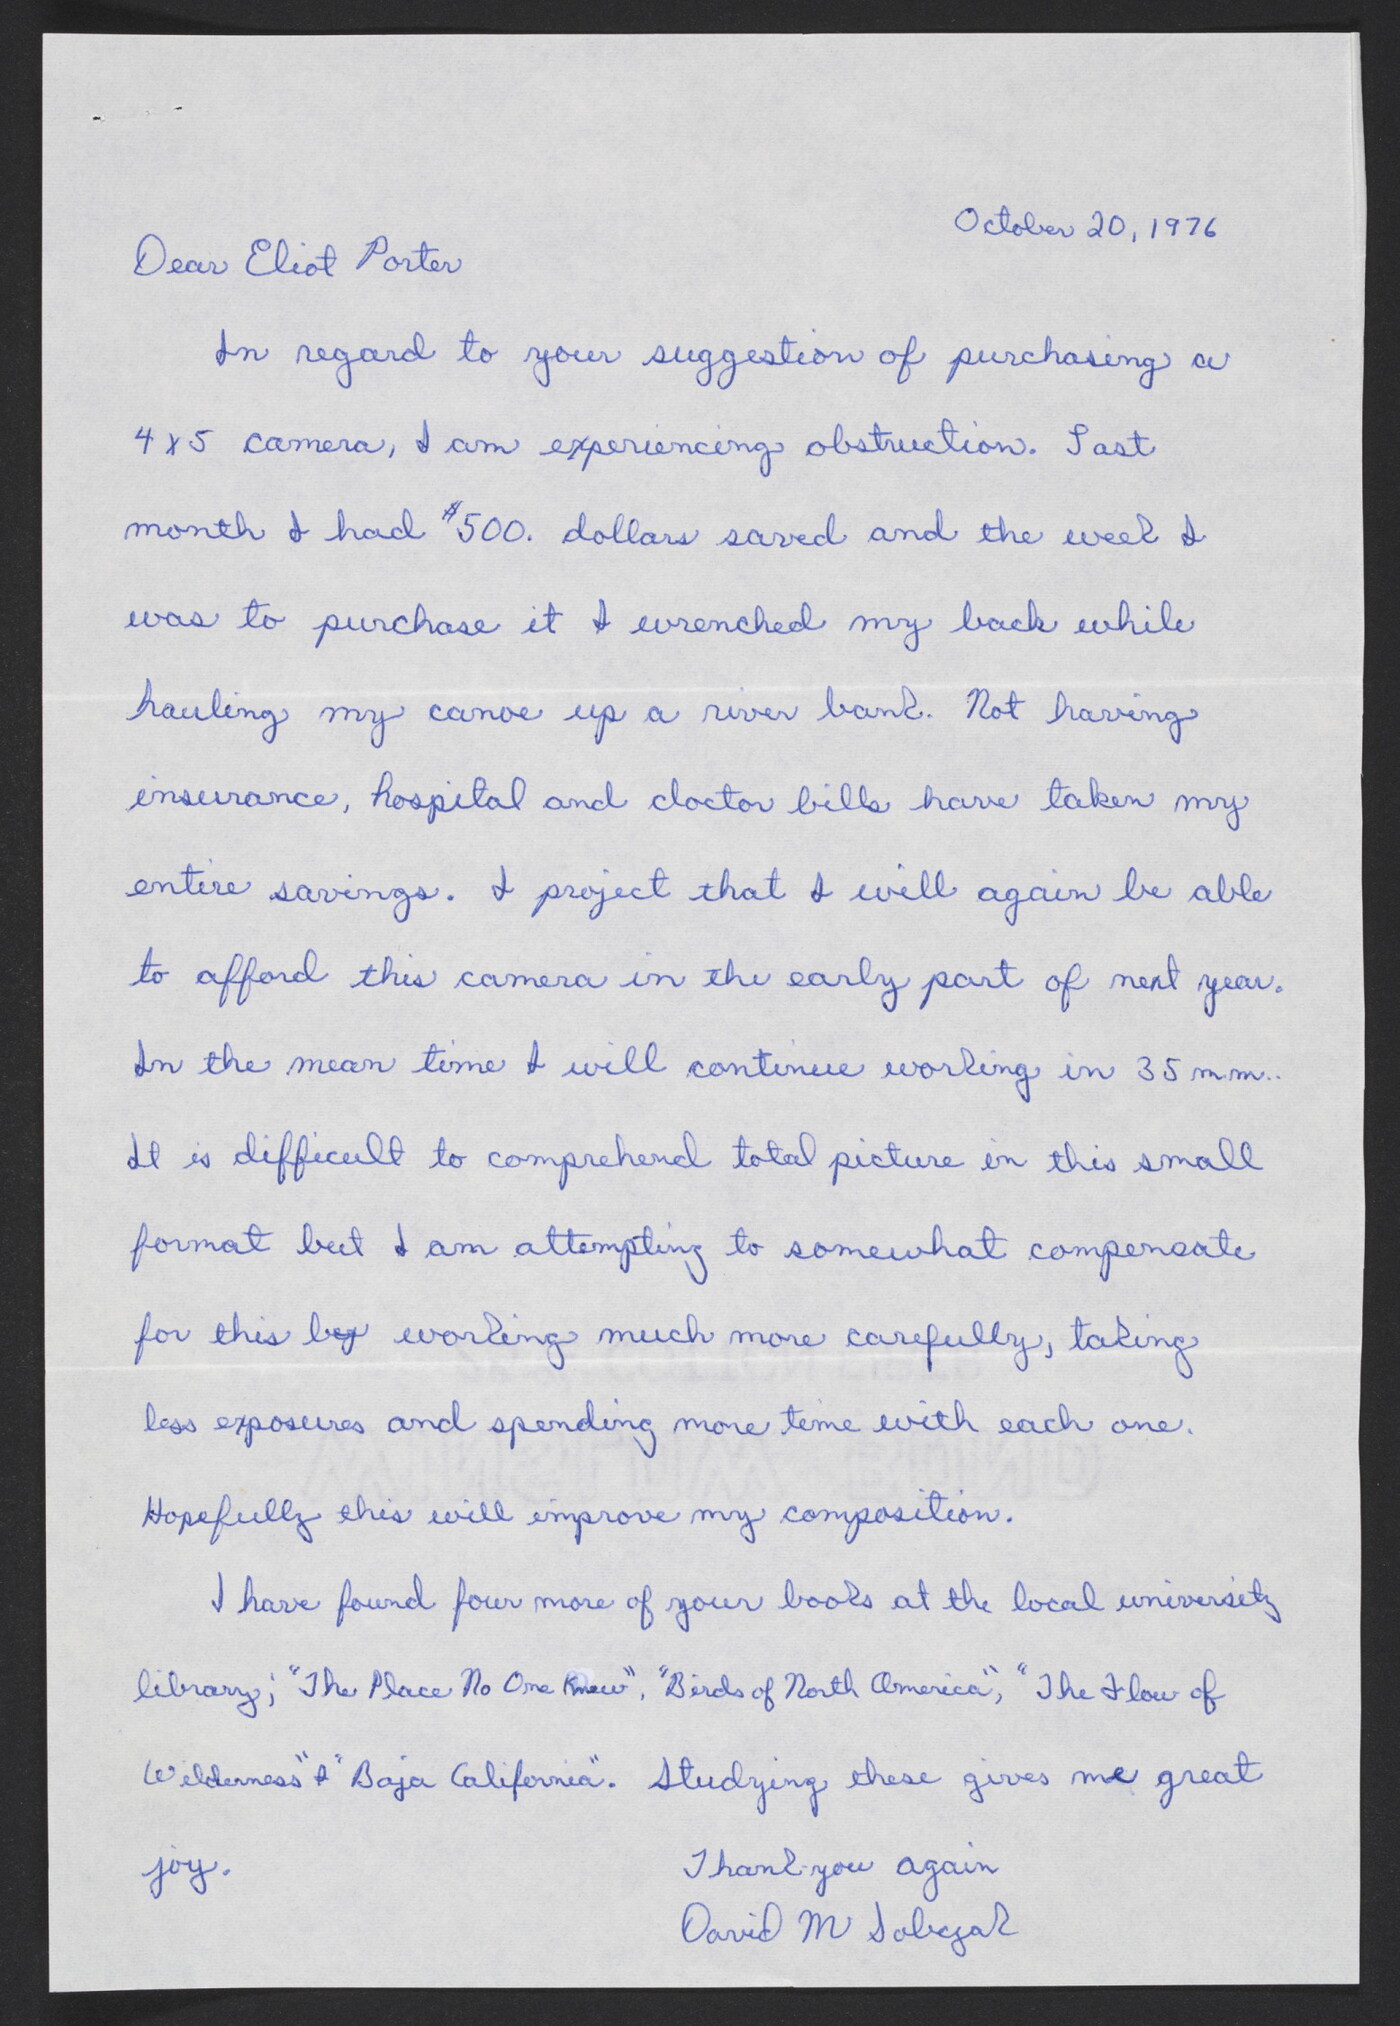 October 20, 1976
Dear Eliot Porter
In regard to your suggestion of purchasing a
4 x 5 camera, I am experiencing obstruction. Last
month I had $500. dollars saved and the week I
was to purchase it I wrenched my back while
hauling my canoe up a river bank. Not having
insurance, hospital and doctor bills have taken my
entire savings. I project that I will again be able
to afford this camera in the early part of next year.
In the mean time I will continue working in 35 m.m..
It is difficult to comprehend total picture in this small
format but I am attempting to somewhat compensate
for this by working much more carefully, taking
less exposures and spending more time with each one.
Hopefully this will improve my composition.
I have found four more of your books at the local university
library; "The Place No One Knew", "Birds of North America", "The Flow of
Wilderness" & "Baja California". Studying these gives me great
joy.
Thank-you again
David M Sobczak